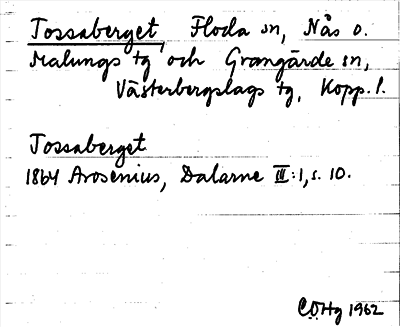 Tossaberget, Floda sn, Nås o.
Malungs tg och Grangärde sn,
Västerbergslags tg, Kopp. l.
Tossaberget
1864 Arosenius, Dalarne III:1, s. 10.
CÖHg 1962